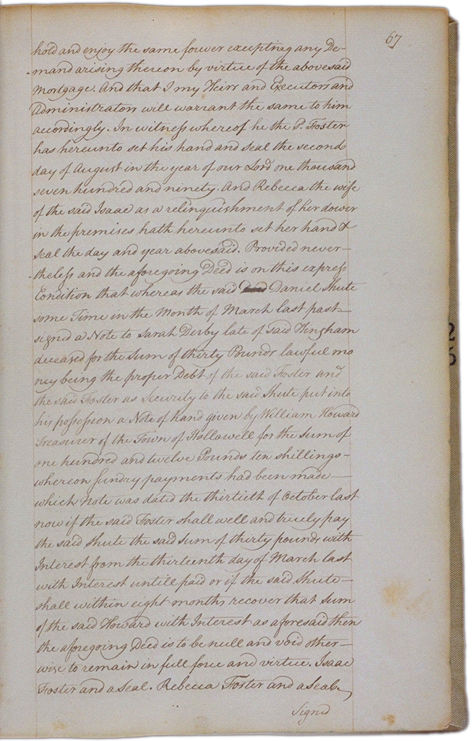 67
hold and enjoy the same forever excepting any De-
mand arising thereon by virtue of the abovesaid
Mortgage. And that I my Heirs and Executors and
Administrators will warrant the same to him
accordingly. In witness whereof he the P. Foster
has hereunto set his hand and seal the second
day of August in the year of our Lord one thousand
seven hundred and ninety. And Rebecca the wife
of the said Isaac as a relinquishment of her dower
in the premises hath hereunto set her hand &
seal the day and year abovesaid. Provided never-
theless and the aforegoing Deed is on this express
Condition that whereas the said Daniel Shute
some Time in the Month of March last past
signed a Note to Sarah Derby late of said Hingham
deceased for the Sum of thirty Pounds lawful mo
ney being the proper Debt of the said Foster and
the said Foster as Security to the said Shute put into
his possession a Note of hand given by William Howard
Treasurer of the Town of Hollowell for the sum of
one hundred and twelve Pounds ten shillings-
whereon sundry payments had been made
which Note was dated the thirtieth of October last
now if the said Foster shall well and truely pay
the said Shute the said sum of thirty pounds with
Interest from the thirteenth day of March last
with Interest untill paid or if the said Shute
shall within eight months recover that Sum
of the said Howard with Interest as aforesaid then
the aforegoing Deed is to be null and void other-
wise to remain in full force and virtue. Isaac
Foster and a Seal. Rebecca Foster and a Seal
Signd